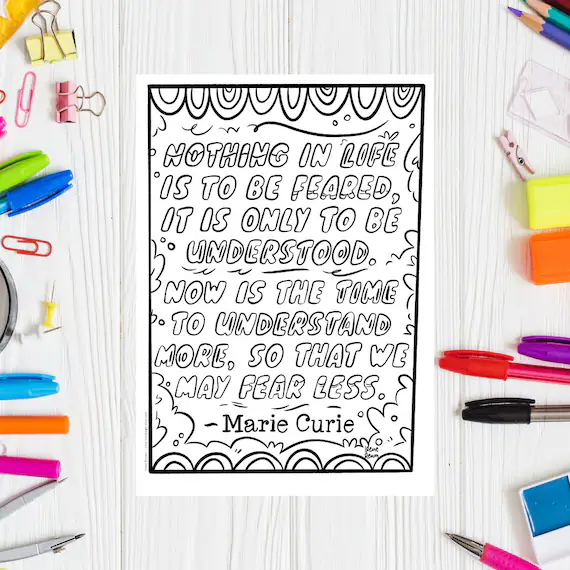 NOTHING IN LIFE
IS TO BE FEARED,
IT IS ONLY TO BE
UNDERSTOOD.
NOW IS THE TIME
TO UNDERSTAND
MORE, SO THAT WE
MAY FEAR LESS.
~ Marie Curie